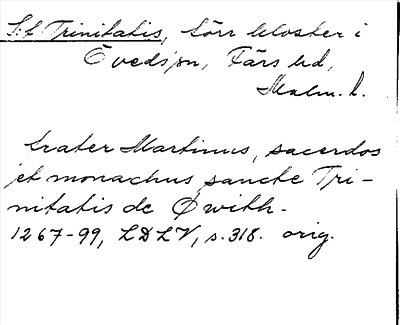 S:t Trinitatis, Törr kloster i
Övedsjön, Färs hd,
Malm. l.
frater Martinus, sacerdos
et monachus sancte Tri-
nitatis de Øwith-
1267-99, LDLV, s. 318. orig.